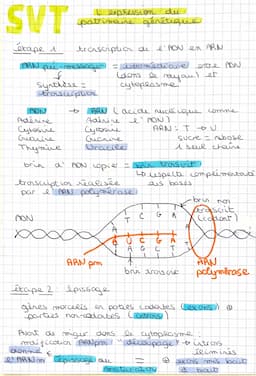 SVT
L'expression du
patrimoine génétique
étape 1 transcription de l'ADN en ARN
ARN pré-messager = intermédiaire entre ADN
(dans le noyau) et
synthèse = cytoplasme
transcription
ADN → ARN (acide nucléique comme
Adénine Adénine l'ADN)
Cytosine Cytosine ARN : T → U
Guanine Guanine sucre = ribose
Thymine Uracile 1 seul chaîne
brin d'ADN copié = brin transcrit
↳ respecte complémentarité
transcription réalisée des bases
par l'ARN polymérase
brin non
transcrit
(codant)
ADN
T C G A
A U C G A T
ARN pm
brin transcrit
ARN
polymérase
étape 2 épissage
gènes morcelés en parties codantes (exons) et
parties non-codantes (introns)
Avant de migrer dans le cytoplasme
modification ARNpm "découpage" → introns
donne éliminés
l'ARNm épissage ou = et exons mis bout
maturation à bout